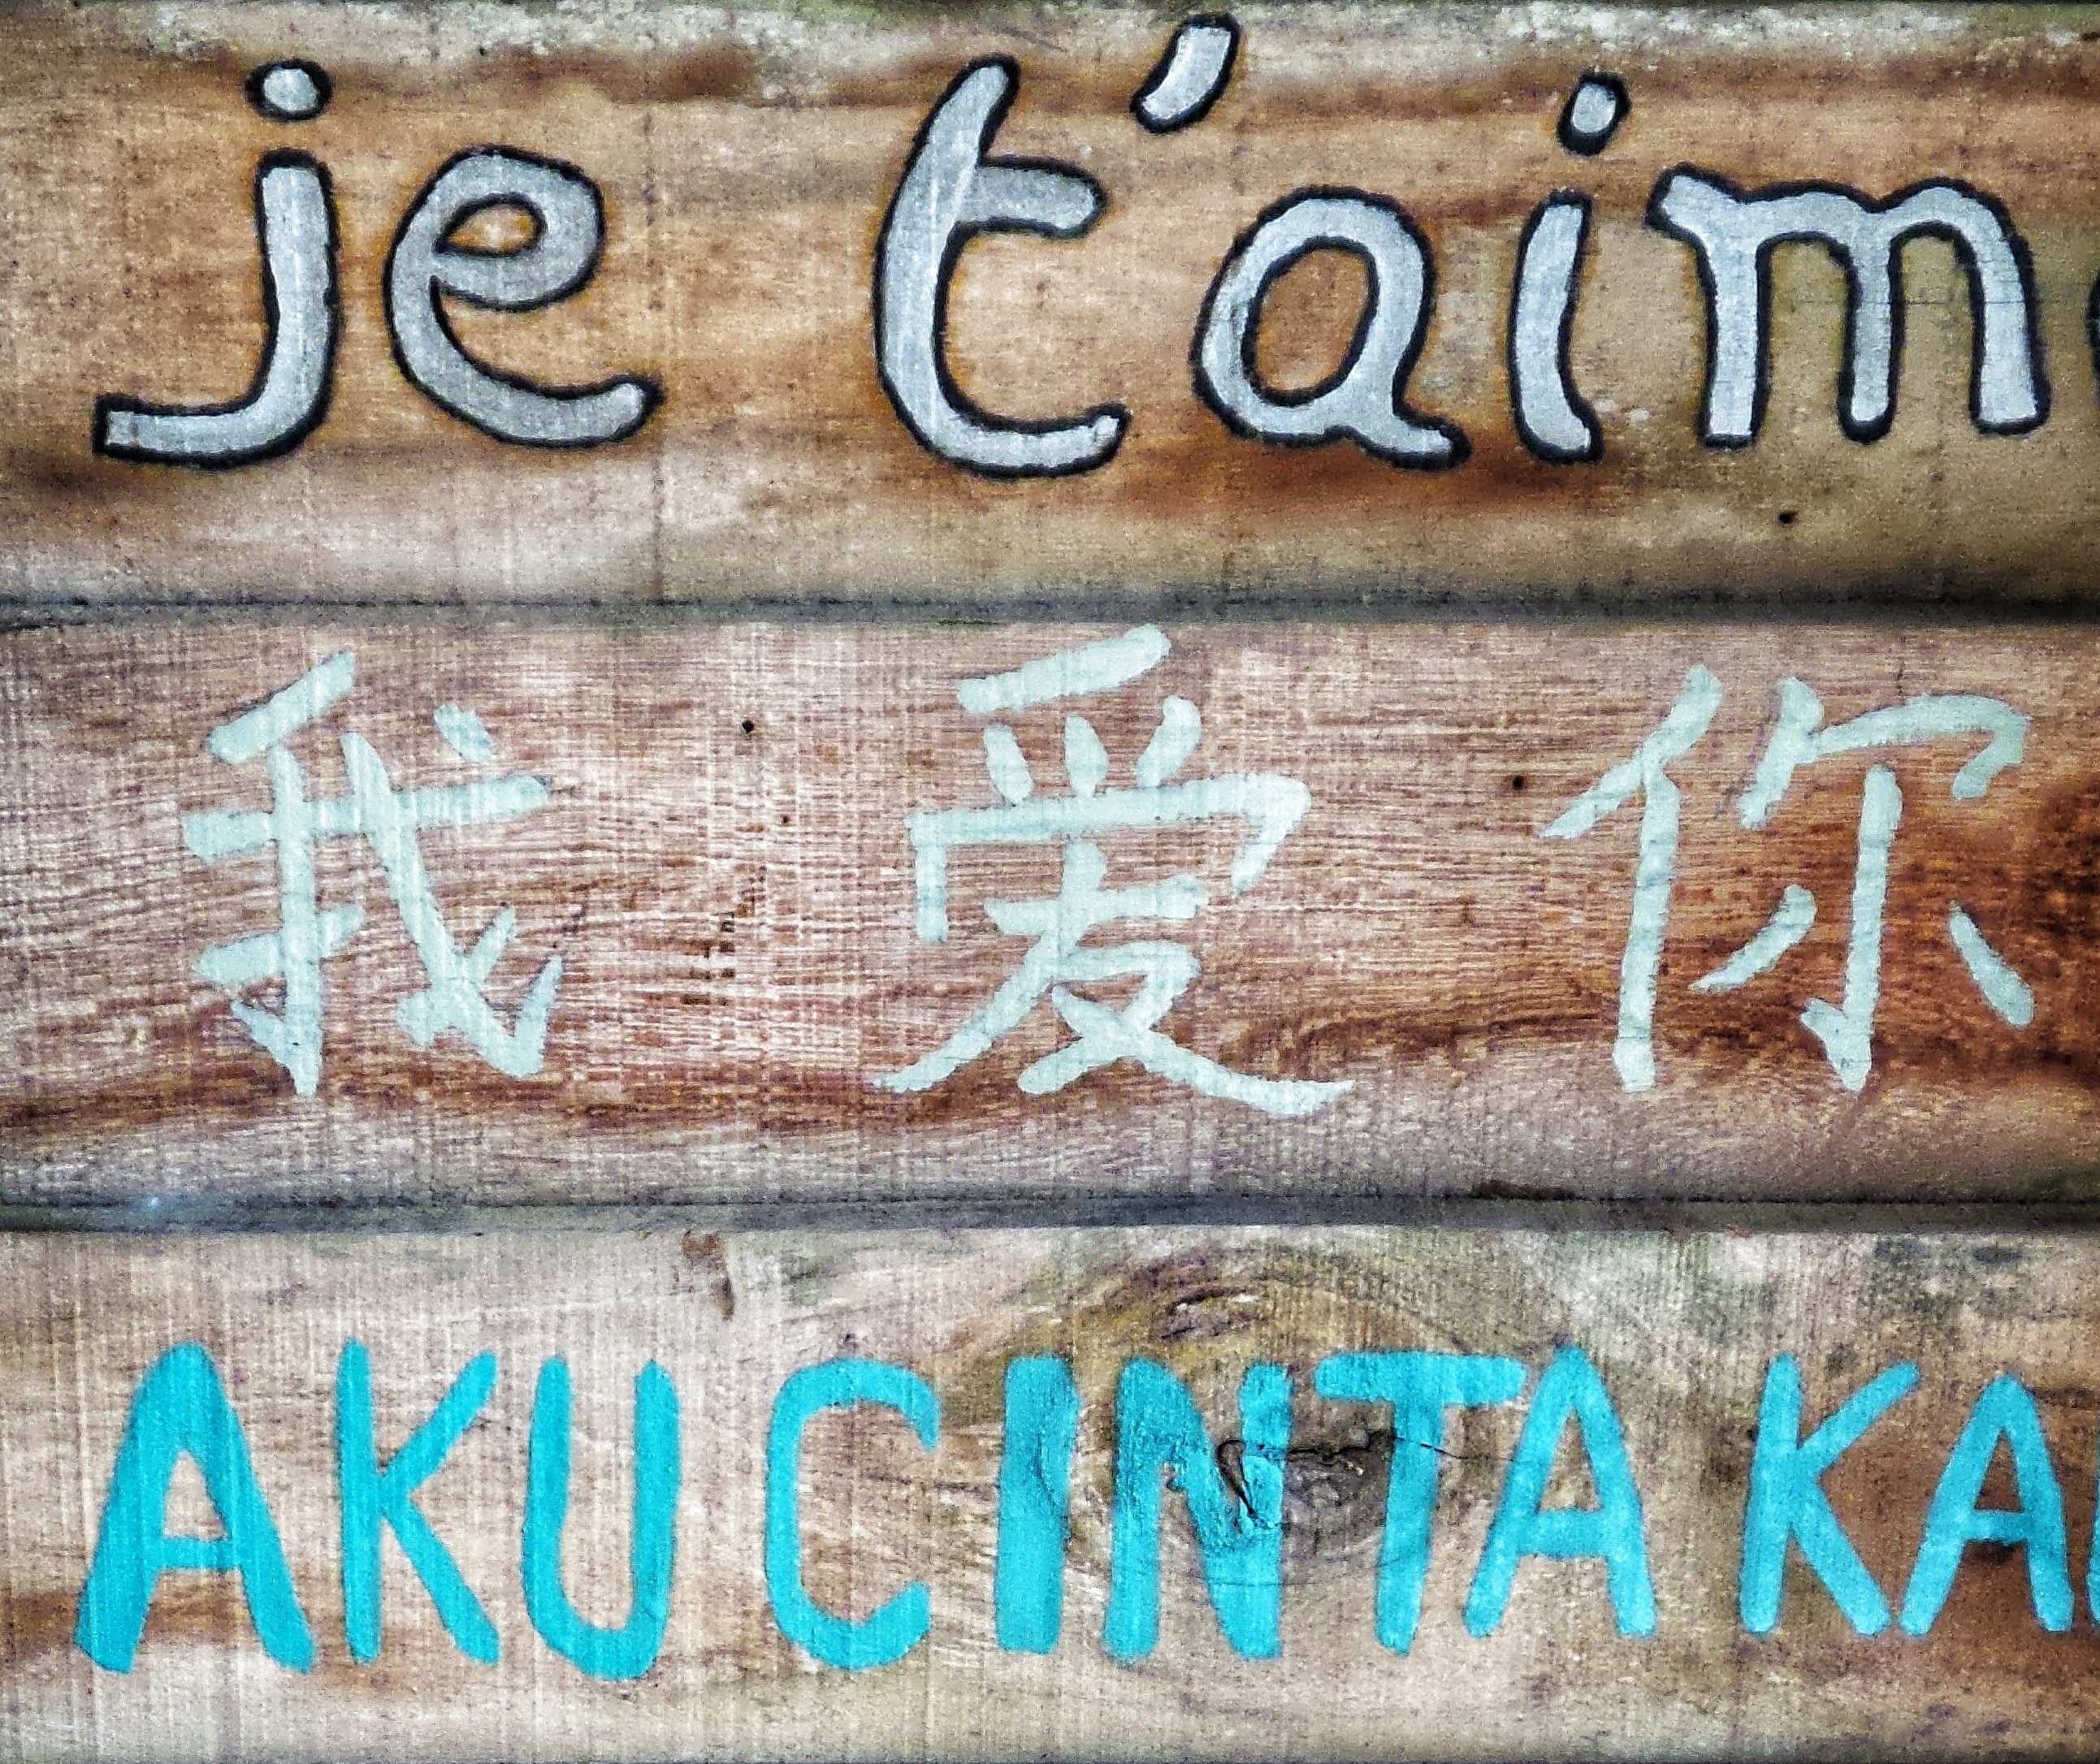 je t'aim
我爱你
AKU CINTA KA